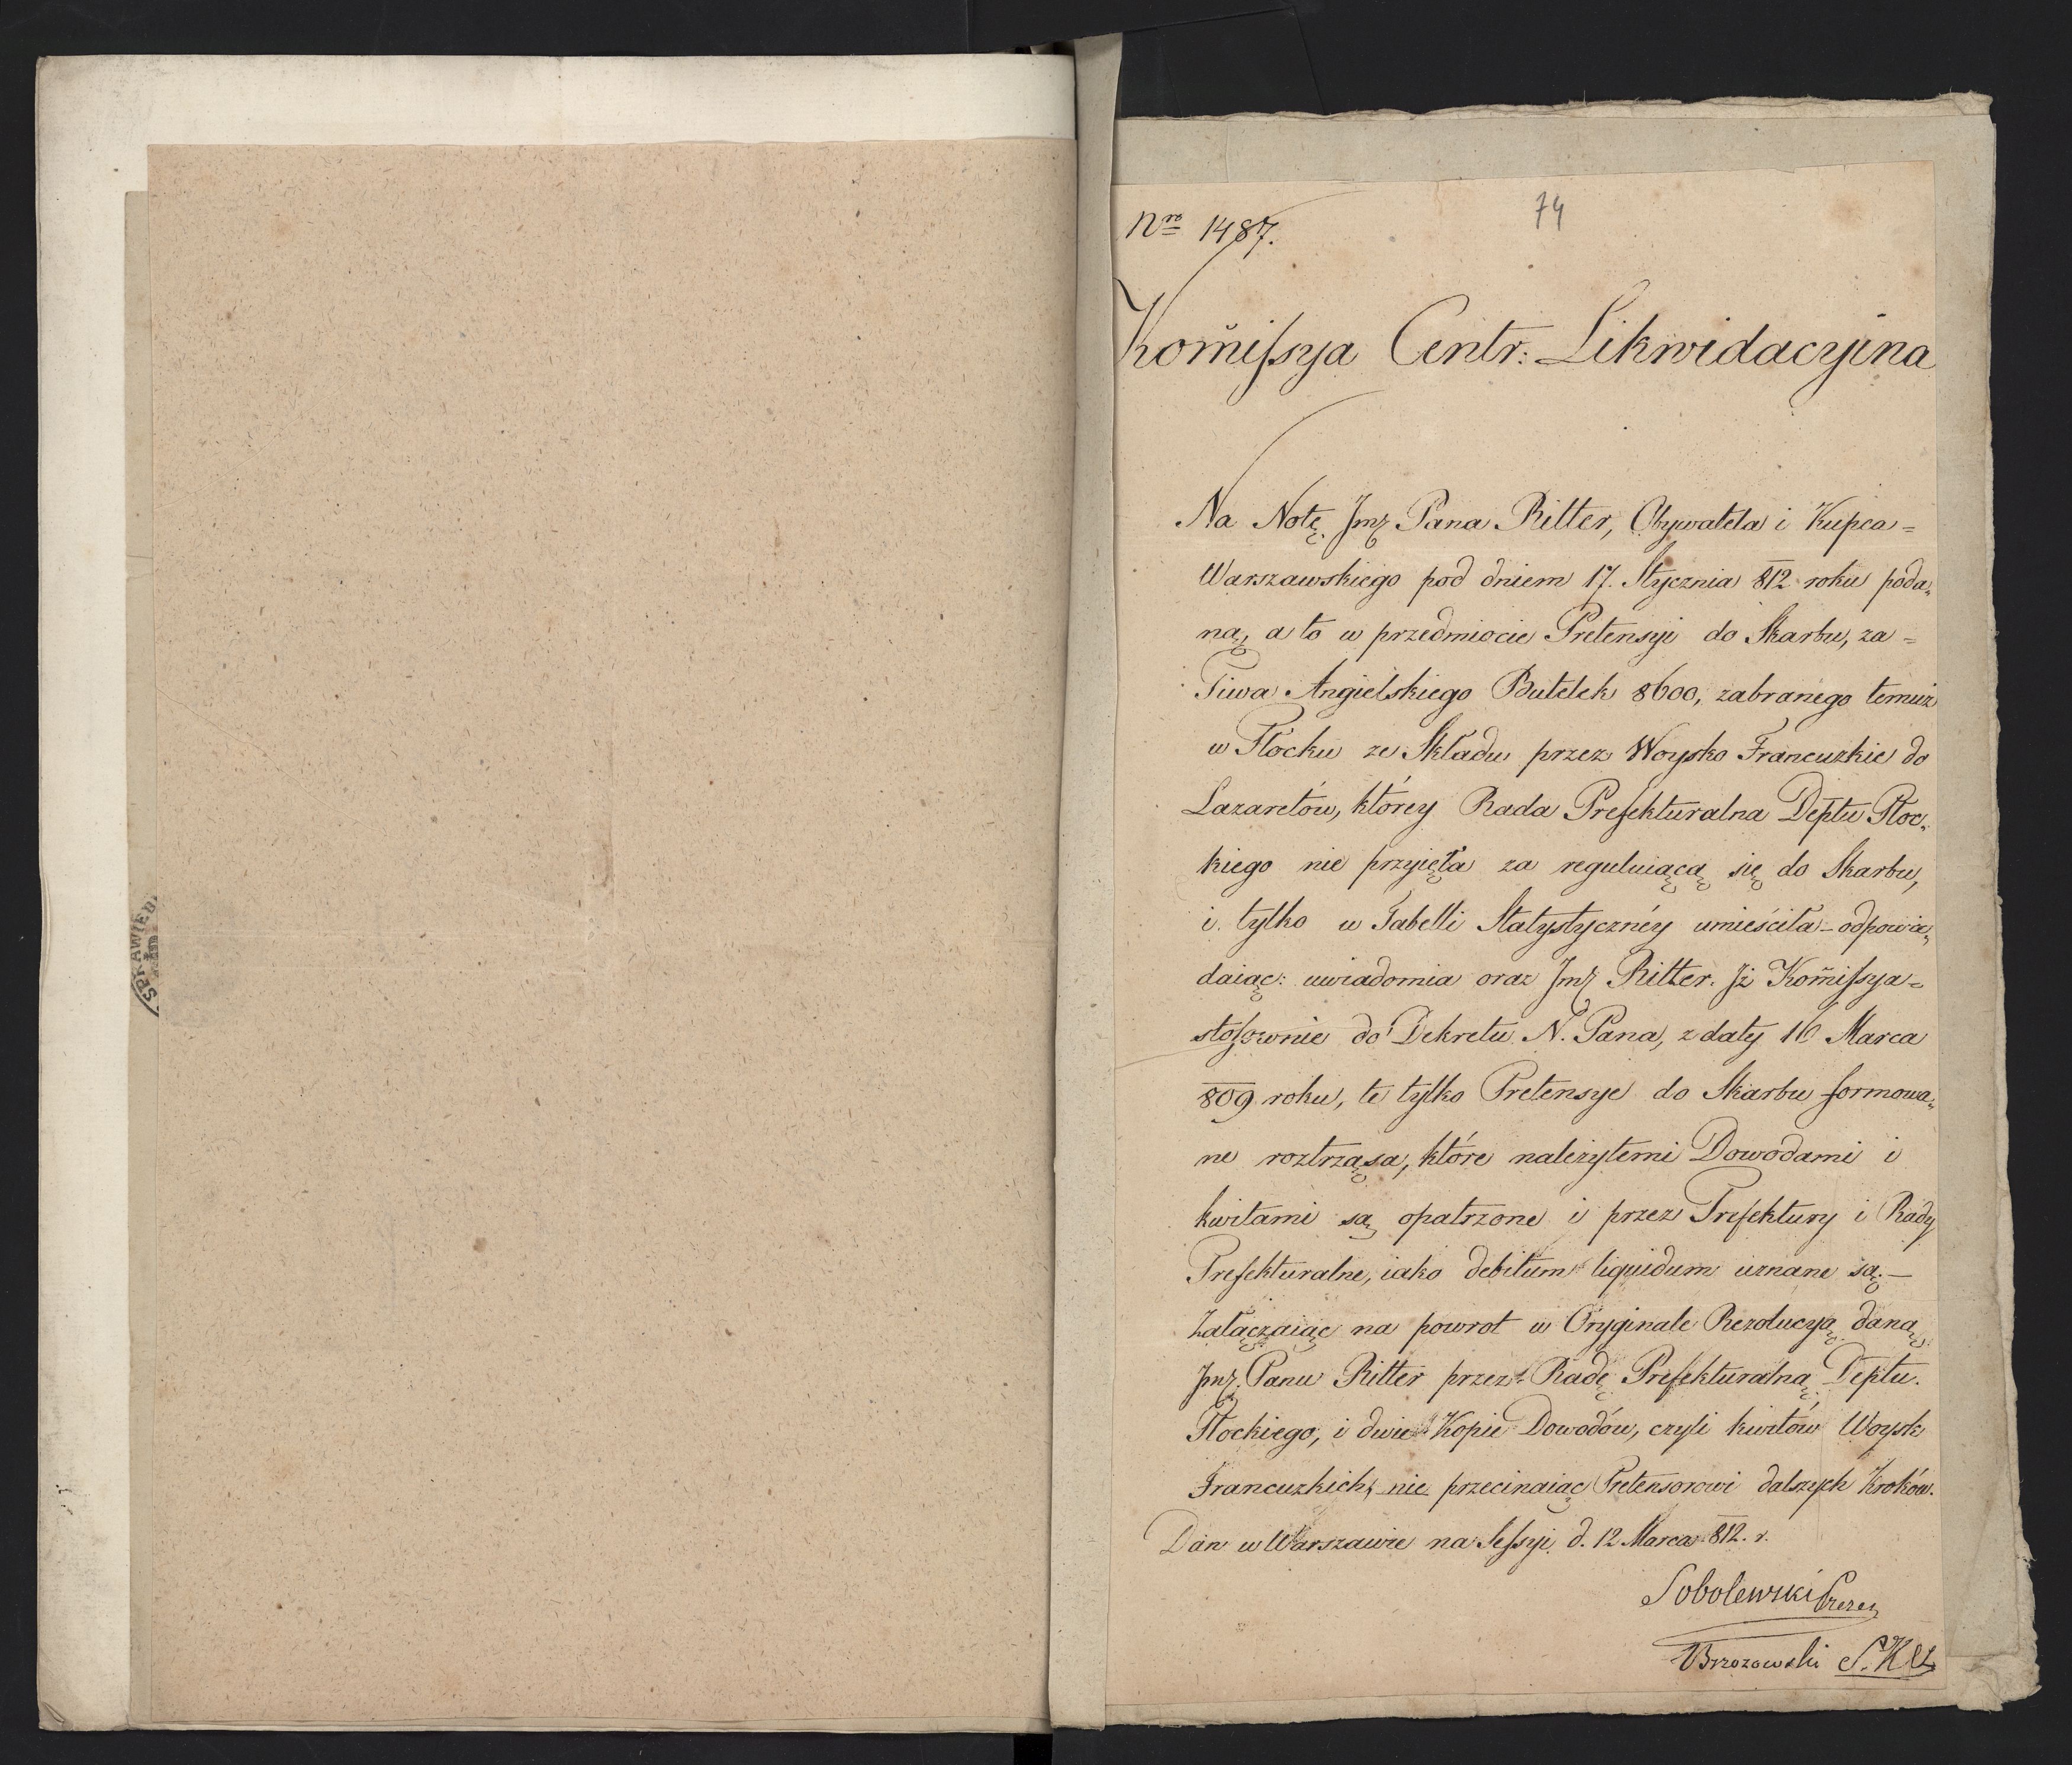 SPRAWIED
Nro 1487.
74
Kom̃issya Centr: Likwidacyina
Na Notę Jmć Pana Ritter, Obywatela i Kupca =
Warszawskiego pod dniem 17. Stycznia 812 roku poda„
ną, a to w przedmiocie Pretensyi do Skarbu, za =
Piwa Angielskiego Butelek 8600, zabranego temuż
w Płocku ze Składu przez Woysko Francuzkie do
Lazaretów, którey Rada Prefekturalna Deptu Płoc„
kiego nie przyięła za reguluiącą się do Skarbu,
i tylko w Tabelli Statystycznéy umieściła – odpowia„
daiąc: uwiadomia oraz Jmć Ritter. Jż Kom̃issya =
stossownie do Dekretu N. Pana, z daty 16 Marca
809 roku, te tylko Pretensye do Skarbu formowa„
ne roztrząsa, które należytemi Dowodami i
kwitami są opatrzone i przez Prefektury i Rady
Prefekturalne, iako debitum liquidum uznane są. –
Załączaiąc na powrot w Oryginale Rezolucyą daną
Jmć Panu Ritter przez Radę Prefekturalną Deptu.
Płockiego, i dwie Kopie Dowodów, czyli kwitów Woysk
Francuzkich, nie przecinaiąc Pretensorowi dalszych Kroków.
Dan w Warszawie na Sessyi d. 12 Marca 812. r.
Sobolewski Prezes
Brzozowski S. K